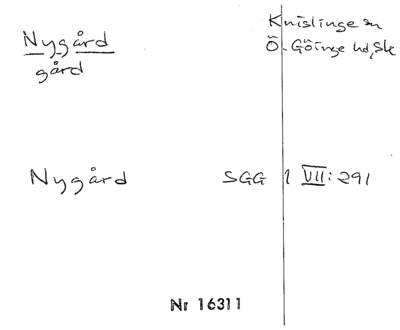 Nygård
gård
Knislinge sn
Ö. Göinge hd, Sk
Nygård SGG 1 VII: 291
Nr 16311